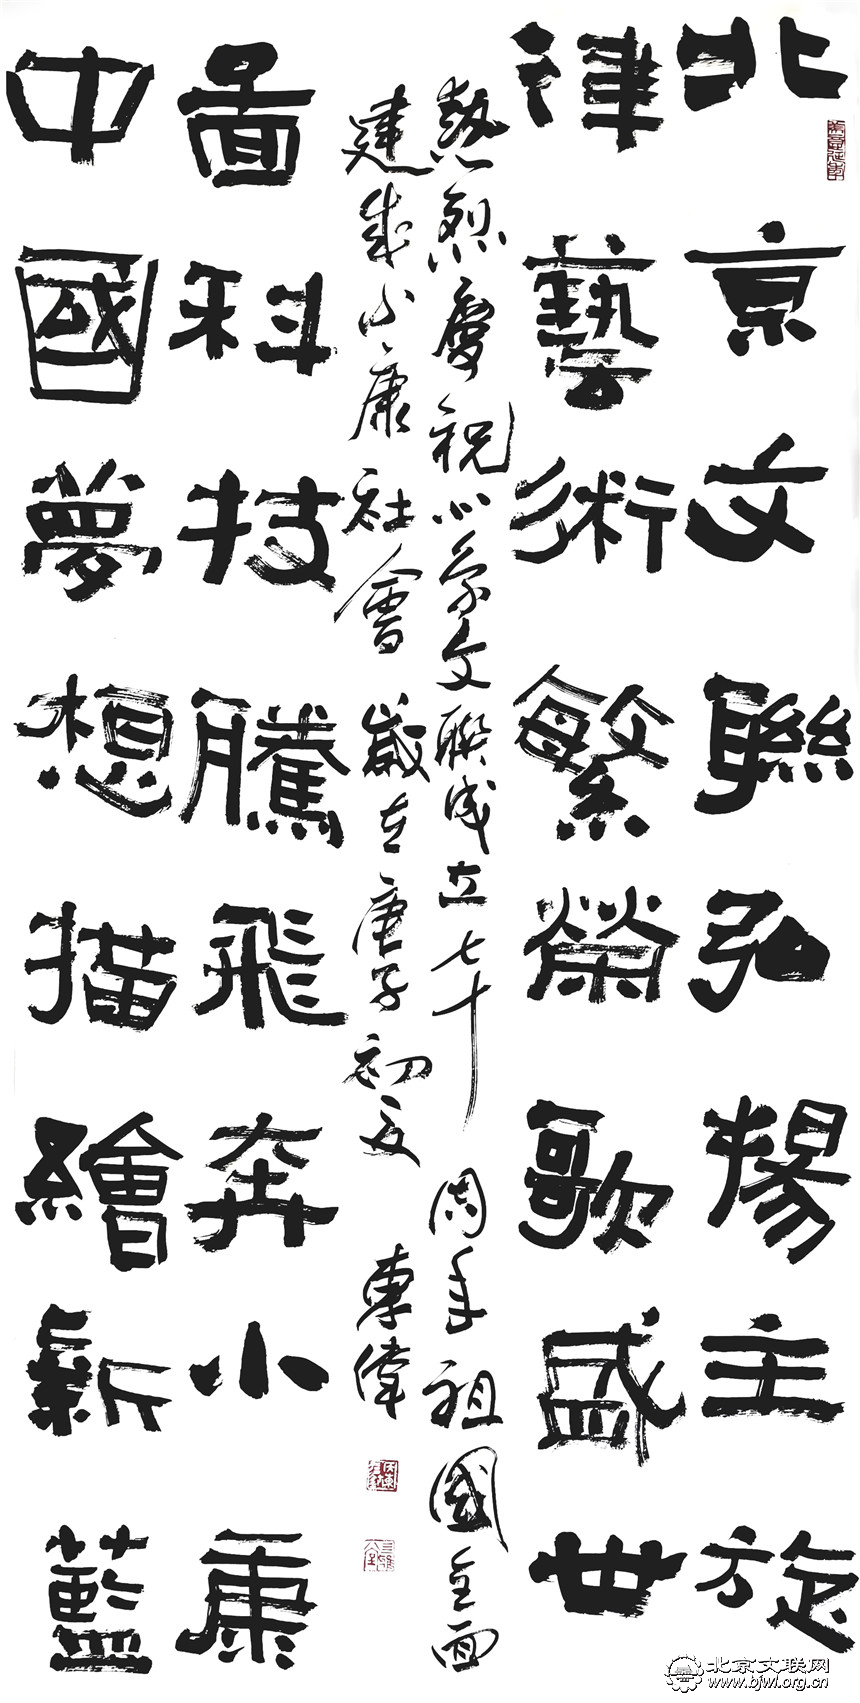 北京文聯弘揚主旋
律藝術繁榮歌盛世
中國夢想描繪新藍
圖科技騰飛奔小康
熱烈慶祝北京文聯成立七十周年祖國全面
建成小康社會 歲在庚子初夏 東偉
北京文联网
www.bjwl.org.cn